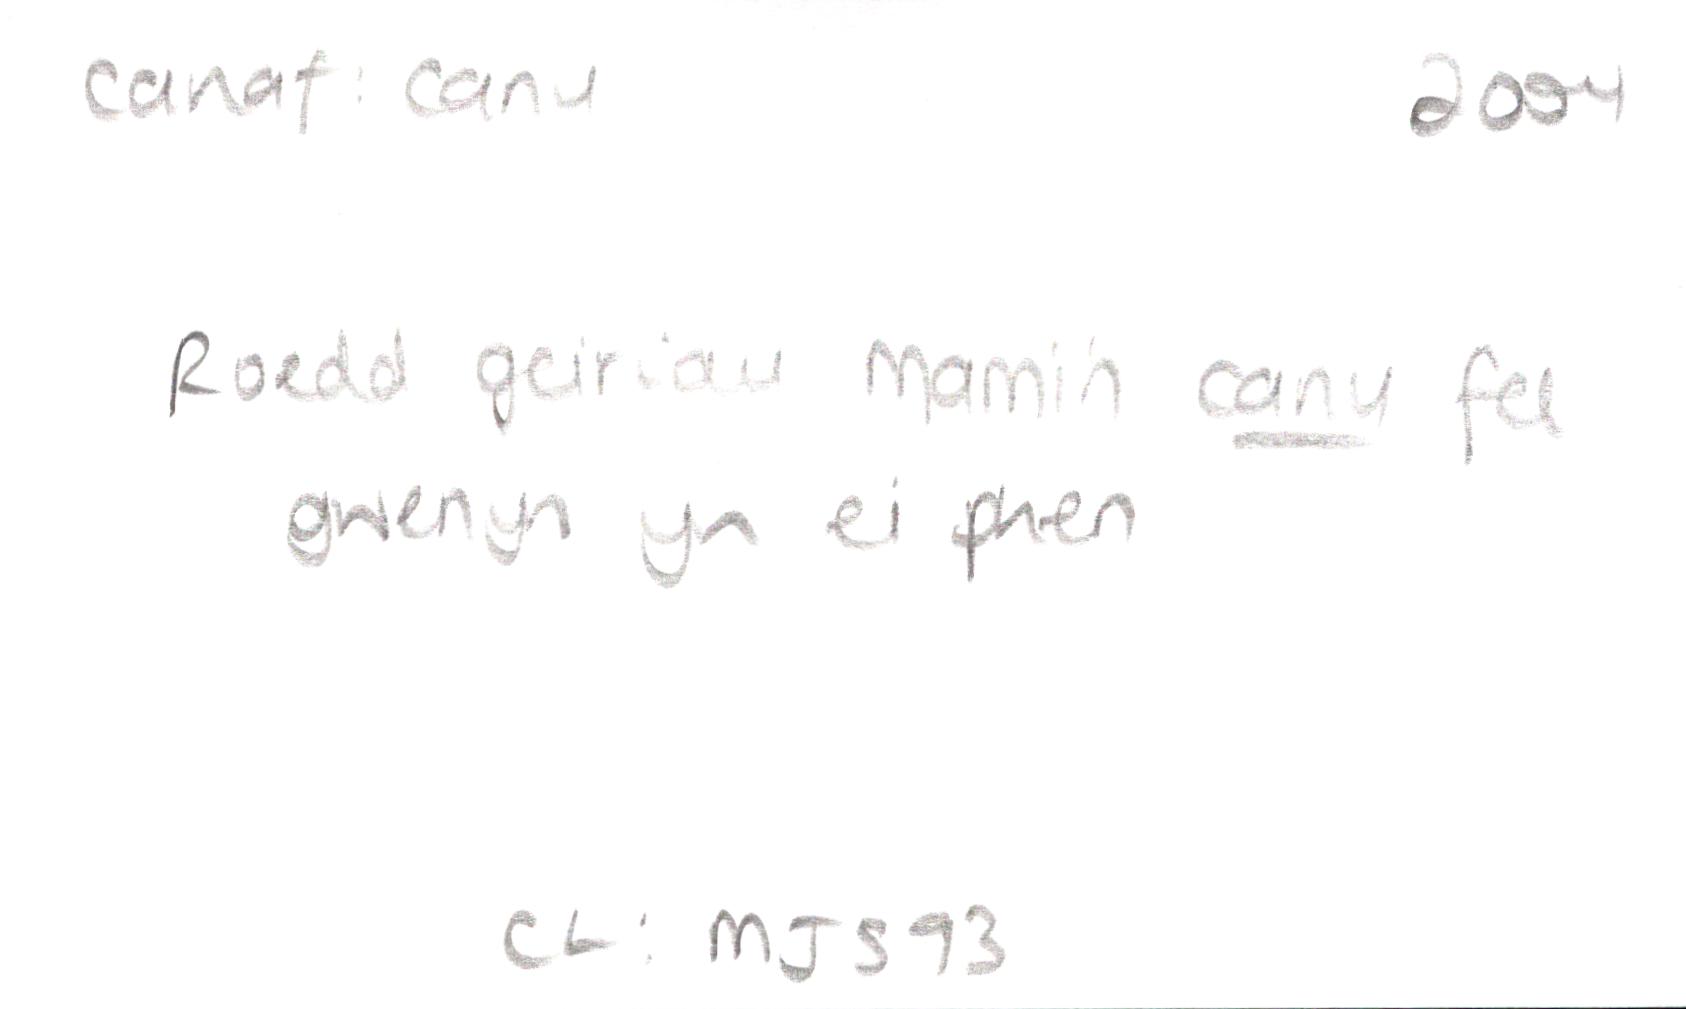 canaf: canu 2004
Roedd geiriau Mam in canu fel
gwenyn yn ei phen
CL: MJS 93